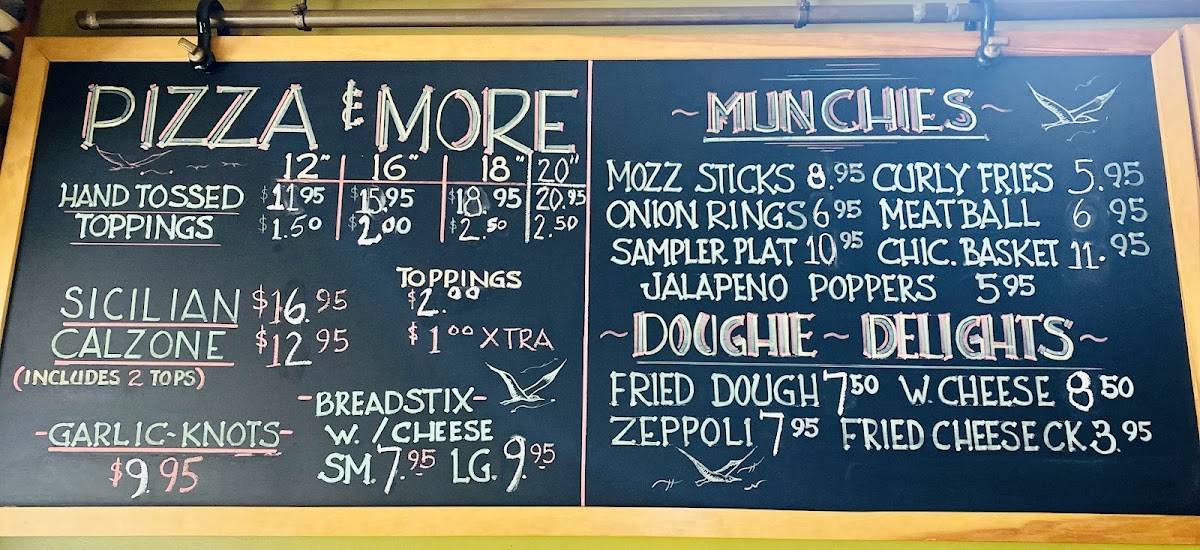 PIZZA & MORE
12" 16" 18" 20"
HAND TOSSED $11.95 $15.95 $18.95 20.95
TOPPINGS $1.50 $2.00 $2.50 2.50
TOPPINGS
SICILIAN $16.95 $2.00
CALZONE $12.95 $1.00 XTRA
(INCLUDES 2 TOPS)
-BREADSTIX-
-GARLIC-KNOTS- W./CHEESE
$9.95 SM. 7.95 LG. 9.95
~ MUNCHIES ~
MOZZ STICKS 8.95 CURLY FRIES 5.95
ONION RINGS 6.95 MEATBALL 6.95
SAMPLER PLAT 10.95 CHIC. BASKET 11.95
JALAPENO POPPERS 5.95
~ DOUGHIE ~ DELIGHTS ~
FRIED DOUGH 7.50 W. CHEESE 8.50
ZEPPOLI 7.95 FRIED CHEESE CK. 3.95